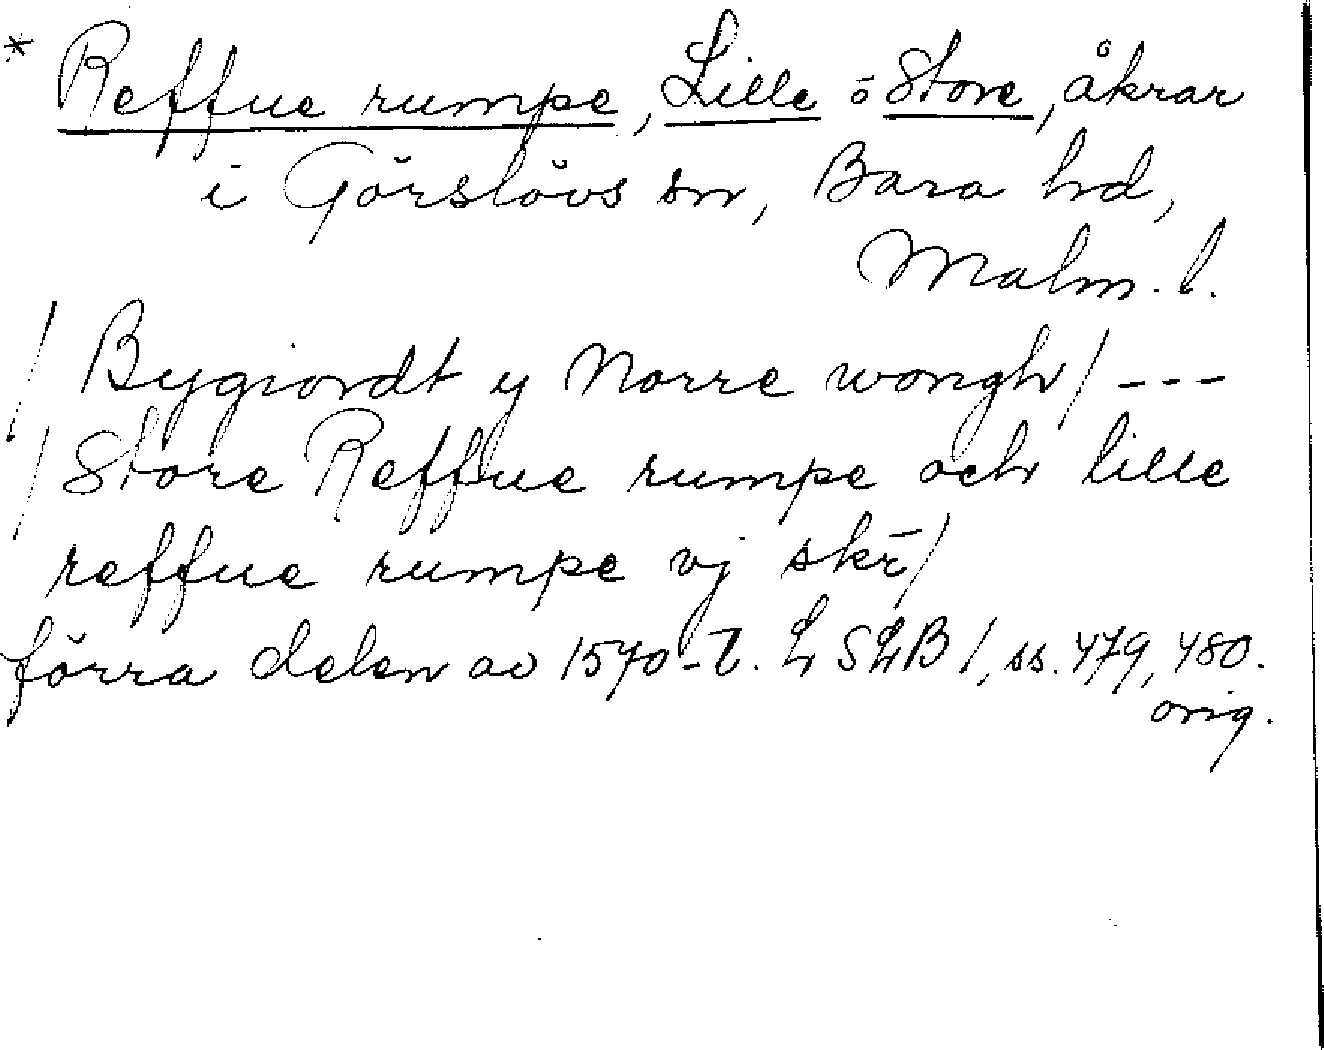 * Reffue rumpe, Lille o Store, åkrar
i Görslövs sn, Bara hd,
Malm. l.
/ Bygiordt y Norre wongh / ---
/ Store Reffue rumpe och lille
reffue rumpe vj skr̄ /
förra delen av 1570-t. LSLB 1, ss. 479, 480.
orig.